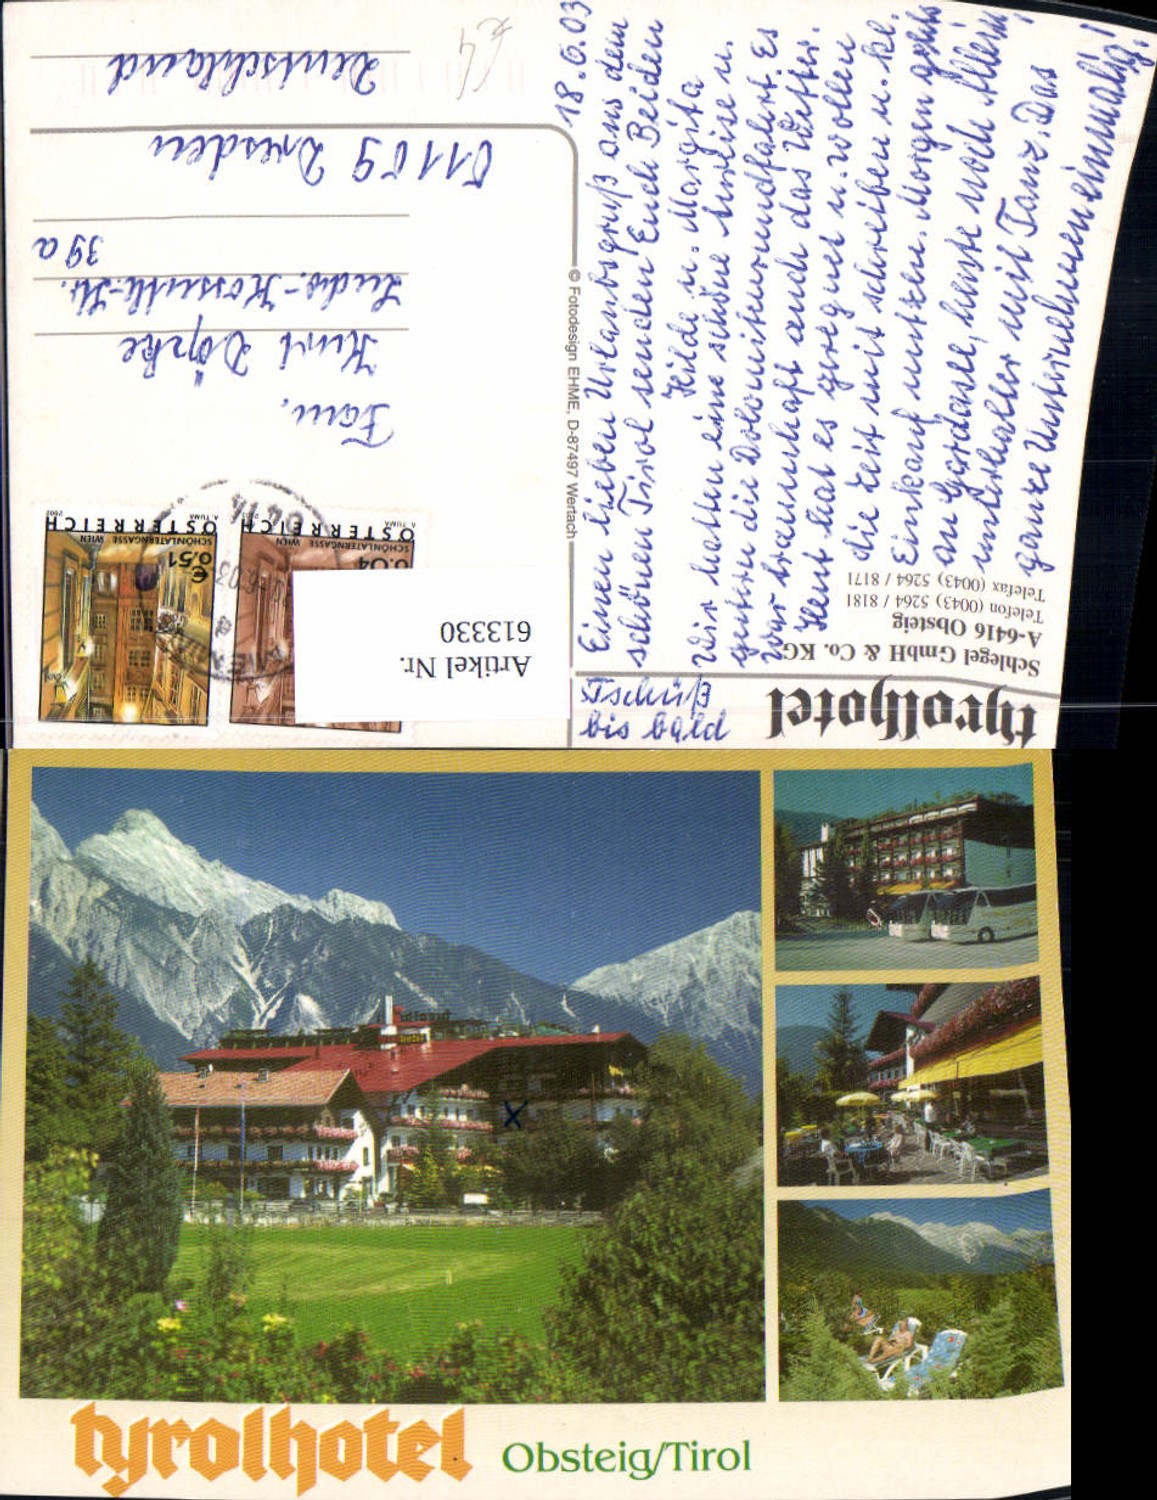 18.6.03
Einen lieben Urlaubsgruß aus dem
schönen Tirol senden Euch Beiden
Hilde u. Margita
Wir hatten eine schöne Anreise u.
gestern die Dolomitenrundfahrt. Es
war traumhaft auch das Wetter.
Heut hat es geregnet u. wollen
die Zeit mit schreiben u. kl.
Einkauf nutzen. Morgen gehts
an Gardasee, heute noch Allein
unterhalter mit Tanz. Das
ganze Unternehmen einmalig!
bis bald
Tschüß
tyrolhotel
Schlegel GmbH & Co. KG
A-6416 Obsteig
Telefon (0043) 5264 / 8181
Telefax (0043) 5264 / 8171
© Fotodesign EHME, D-87497 Wertach
Artikel Nr.
613330
0.04
SCHÖNLATERNGASSE WIEN
ÖSTERREICH
A. TUMA
€ 0,51
SCHÖNLATERNGASSE WIEN
ÖSTERREICH
A. TUMA 2002
Fam.
Kurt Döpke
Ludw.-Kossuth-Str.
39a
01109 Dresden
Deutschland
tyrolhotel
Obsteig/Tirol